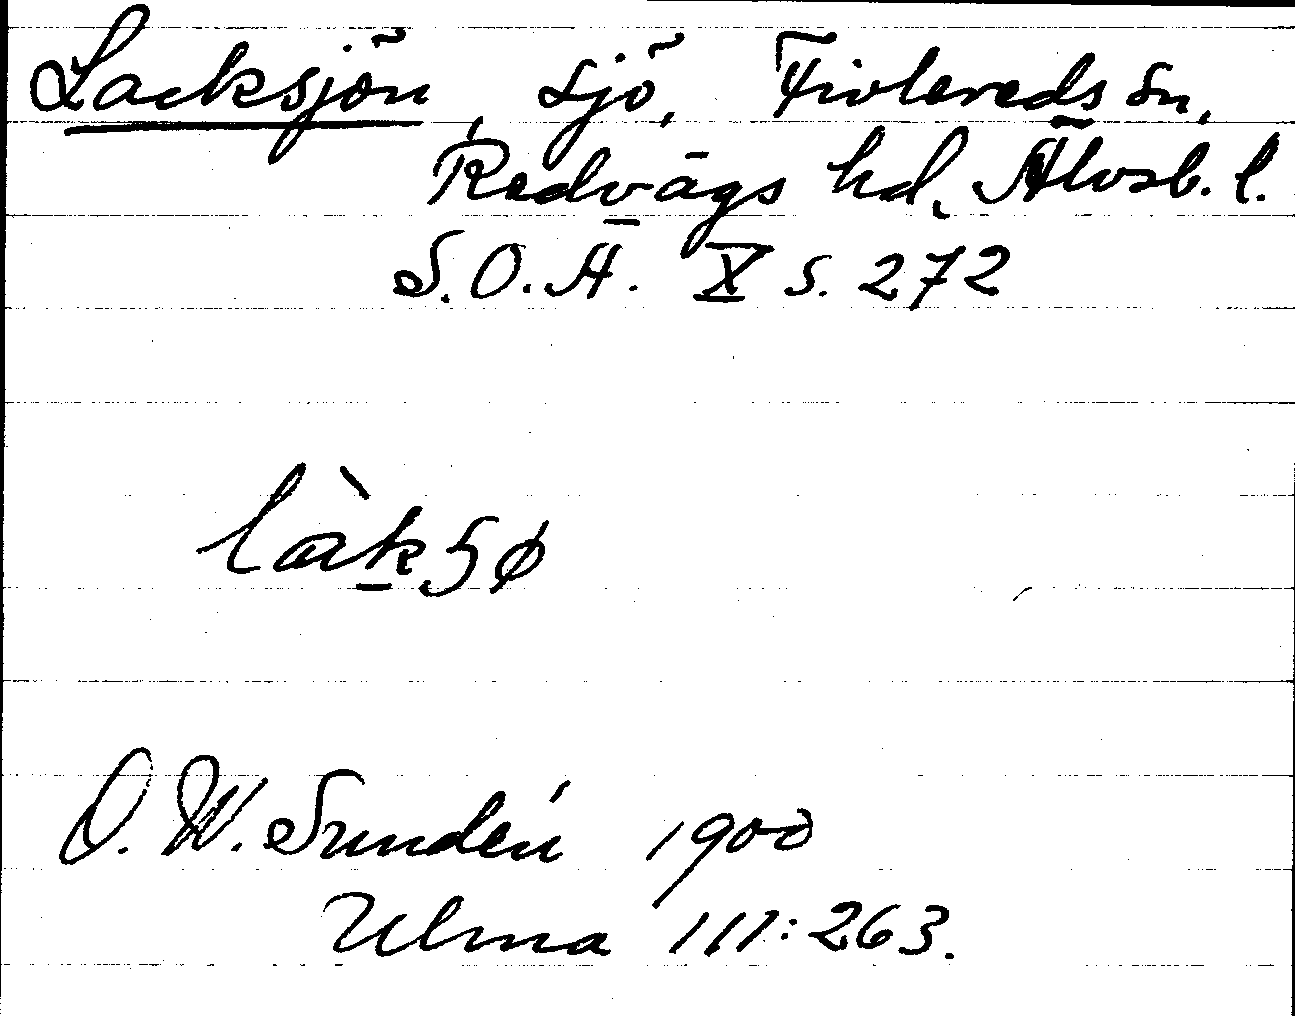 Lacksjön, sjö, Fivlereds sn,
Redvägs hd, Älvsb. l.
S.O.Ä. X s. 272
làkʃø
O. W. Sundén 1900
Ulma 111:263.